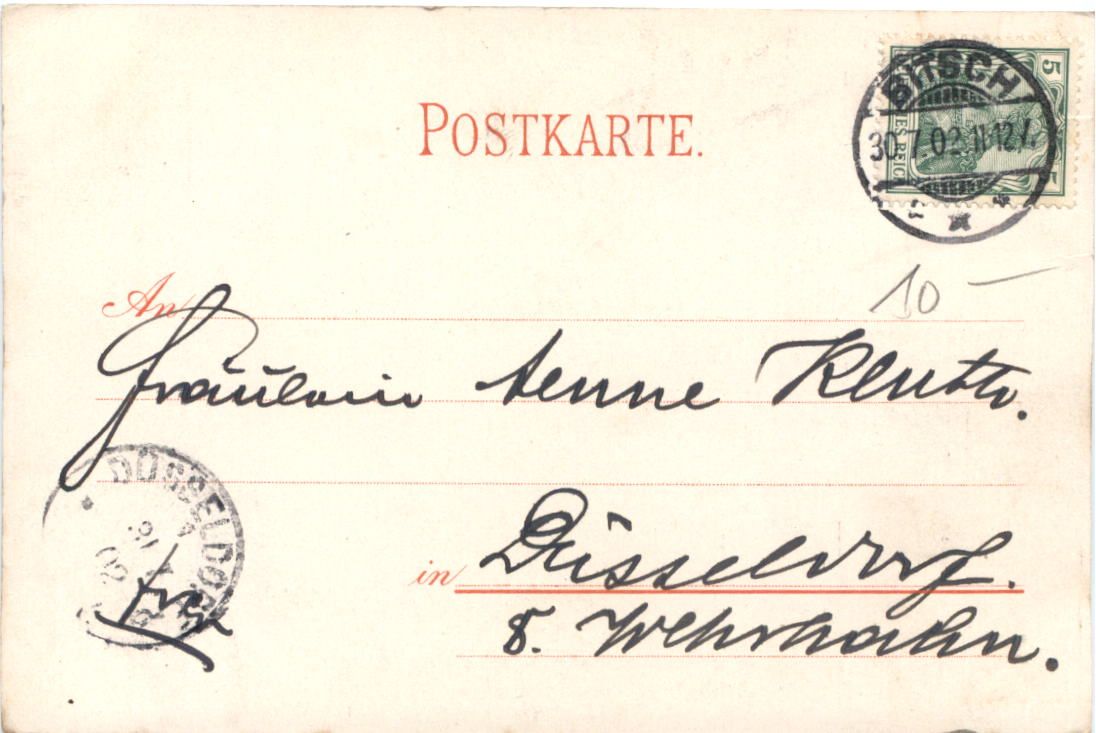 POSTKARTE.
BITSCH
30.7.02.11-12V.
5
ES REICH
10 —
An
Fräulein Aenne
DÜSSELDORF
in Düsseldorf.
8. Wehrhahn.